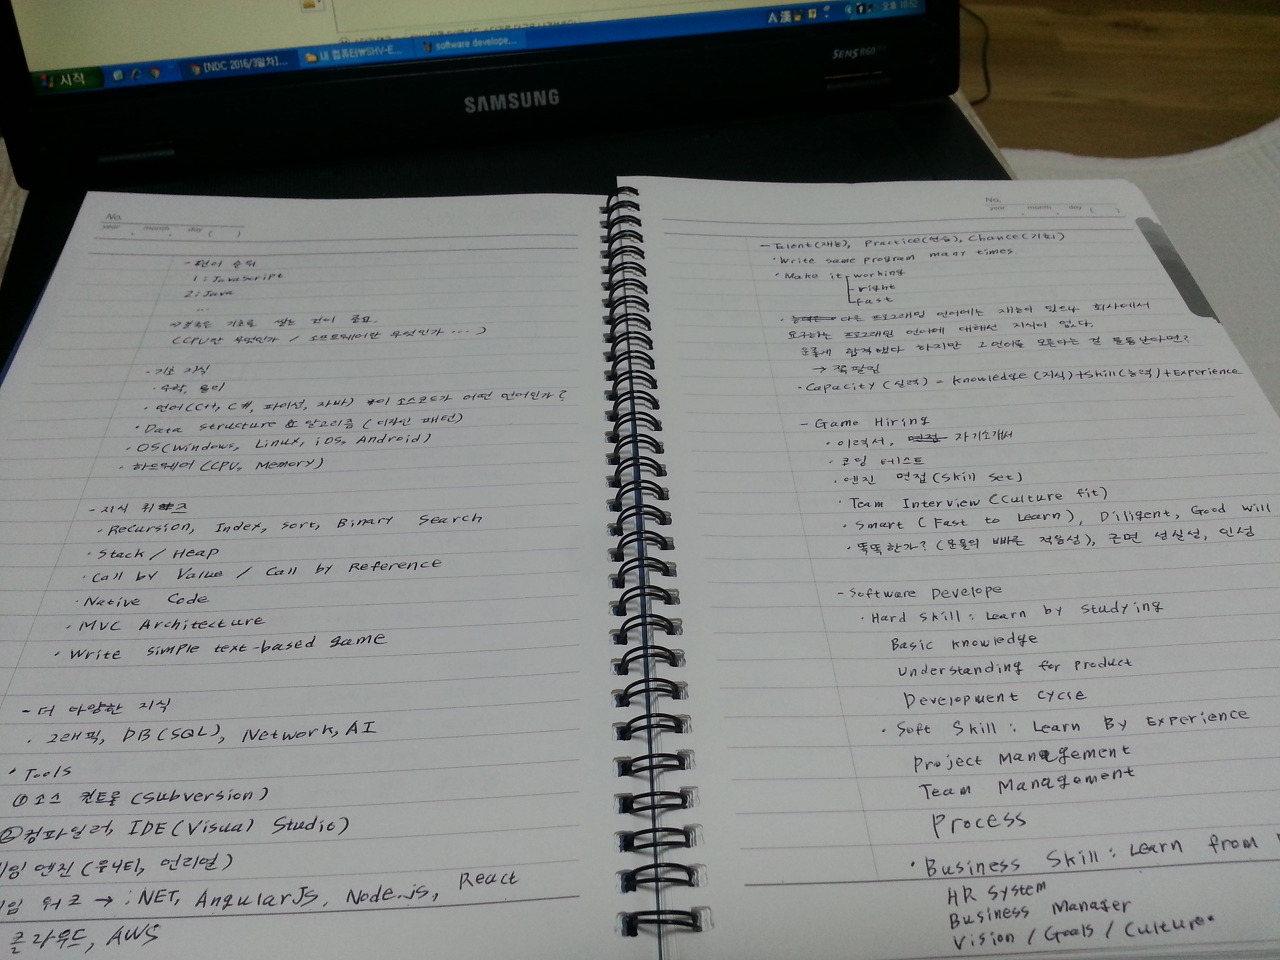 A 漢
오후 10:52
시작
[NDC 2016/3일차]...
내 컴퓨터\SHV-E...
software develope...
SENS R60
SAMSUNG
No.
year . month . day ( )
- 언어 순위
1 : JavaScript
2 : Java
...
기초를 쌓는 것이 중요.
(CPU란 무엇인가 / 소프트웨어란 무엇인가 ...)
- 기초 지식
· 수학, 물리
· 언어(C++, C#, 파이썬, 자바) 이 소스코드가 어떤 언어인가?
· Data Structure & 알고리즘 (디자인 패턴)
· OS(Windows, Linux, iOS, Android)
· 하드웨어 (CPU, Memory)
- 지식 퀴즈
· Recursion, Index, Sort, Binary Search
· Stack / Heap
· Call by Value / Call by Reference
· Native Code
· MVC Architecture
· Write simple text-based game
- 더 다양한 지식
· 그래픽, DB(SQL), Network, AI
· Tools
① 소스 컨트롤 (Subversion)
② 컴파일러, IDE(Visual Studio)
임 엔진 (유니티, 언리얼)
임 워크 → .NET, AngularJS, Node.js, React
클라우드, AWS
No.
year . month . day ( )
- Talent(재능), Practice(연습), Chance(기회)
· Write same program many times
· Make it working
- right
fast
· 다른 프로그래밍 언어에는 재능이 있으나 회사에서
요구하는 프로그래밍 언어에 대해선 지식이 없다.
운좋게 합격했다 하지만 그 언어를 모른다는 걸 들통난다면?
→ 쪽팔림
· Capacity (실력) = Knowledge (지식) + Skill (능력) + Experience
- Game Hiring
· 이력서, 면접 자기소개서
· 코딩 테스트
· 엔진 면접 (Skill Set)
· Team Interview (Culture fit)
· Smart (Fast to Learn), Diligent, Good Will
· 똑똑한가? (문물의 빠른 적응성), 근면 성실성, 인성
- Software Develope
· Hard Skill : Learn by Studying
Basic Knowledge
Understanding for Product
Development Cycle
· Soft Skill : Learn By Experience
Project Management
Team Management
Process
· Business Skill : Learn from
HR System
Business Manager
Vision / Goals / Culture